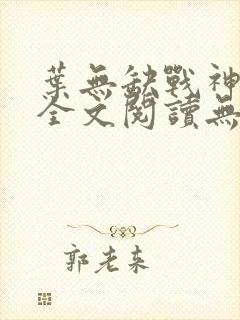 葉無缺戰神
全文閱讀無
郭老來